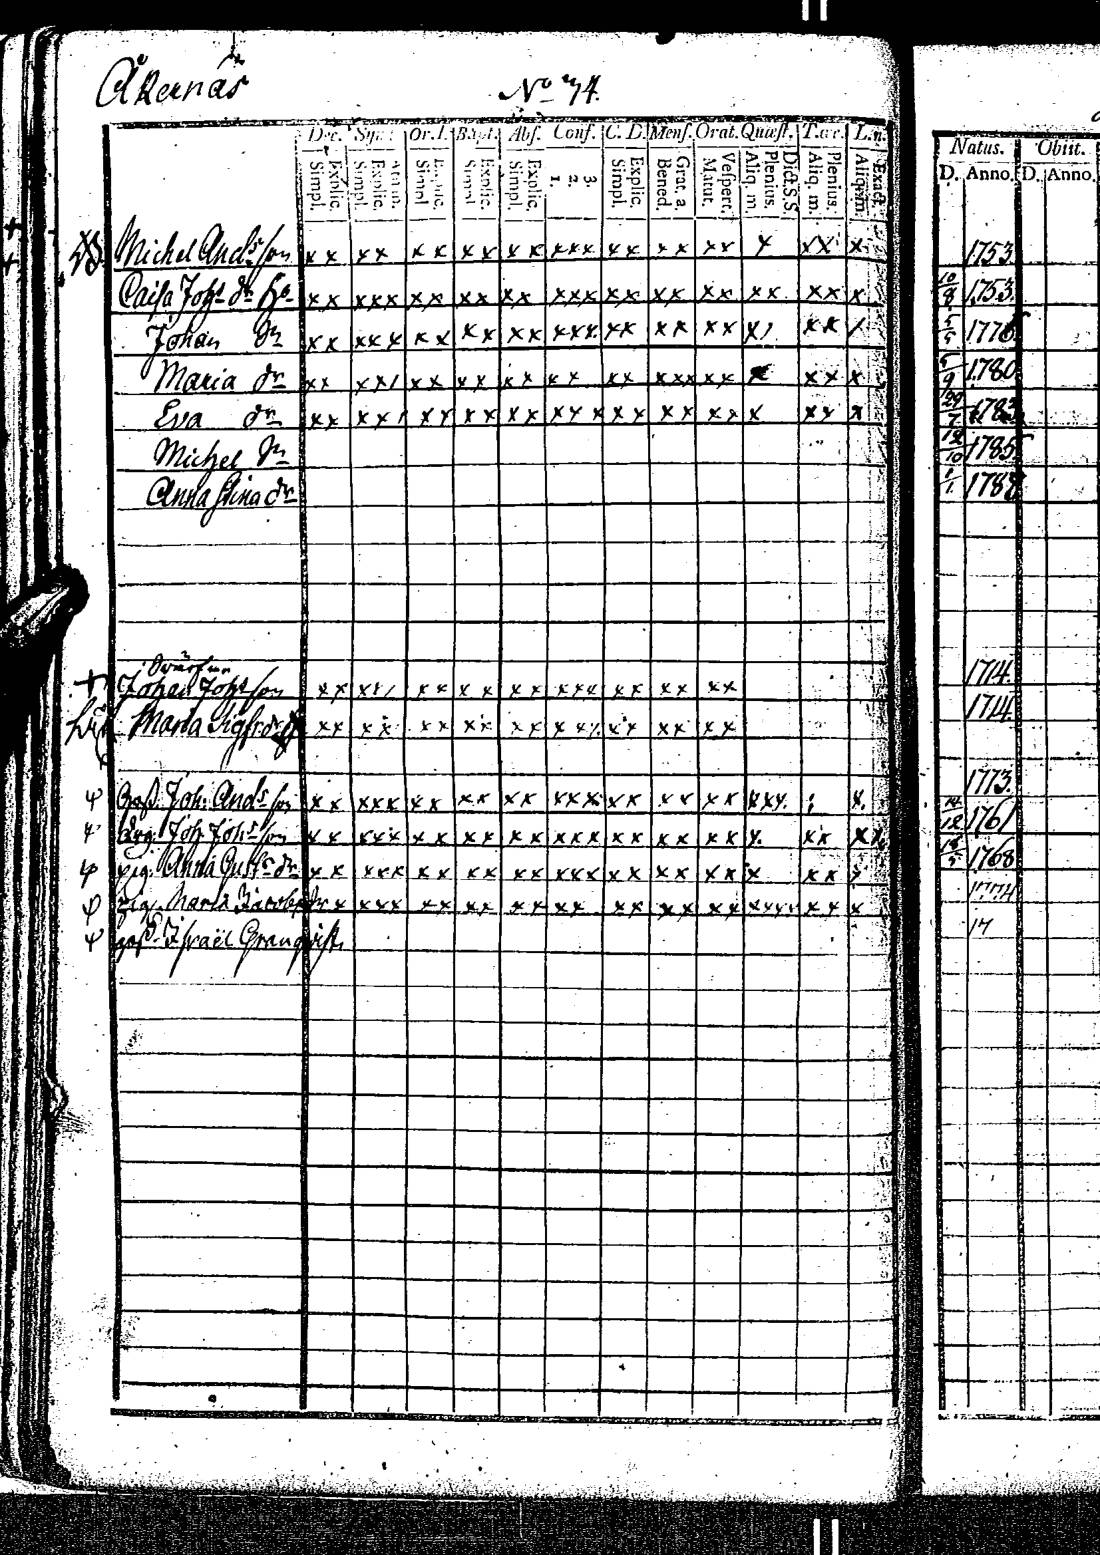 Åkernäs
No 74.
Dec. Sym. Or. D. Bapt. Abs. Conf. C. D. Mens. Orat. Quæst. T. œc. L. n. Natus. Obiit.
Explic. Simpl. Explic. Simpl. Explic. Simpl. Explic. Simpl. Explic. Simpl. 3. 2. 1. Explic. Simpl. Grat. a. Bened. Vespert. Matut. Dict. S. S. Plenius. Aliq. m. Plenius. Aliq. m. Exact. Aliq. m. D. Anno. D. Anno.
Michel Ands son x x x x x x x x x x x x x x x x x x x x x x x x 1753
Caisa Johs dr x x x x x x x x x x x x x x x x x x x x x x x x x x x 10/8 1753.
Johan x x x x x x x x x x x x x x x x x x x x x x x 5/5 1776
Maria dr x x x x x x x x x x x x x x x x x x x x x x x 5/9 1780
Eva dr x x x x x x x x x x x x x x x x x x x x x x x x 29/7 1783
Michel 12/10 1785
Anna Stina dr 1/1 1787
Johan Johs son x x x x x x x x x x x x x x x x x x 1714.
Maria Sigfr. dr x x x x x x x x x x x x x x x x x x 1714
Joh. Ands son x x x x x x x x x x x x x x x x x x x x x x x x 1773.
Drg. Joh. Johs son x x x x x x x x x x x x x x x x x x x x x x x x x 14/12 1761
pig. Anna Gust. dr x x x x x x x x x x x x x x x x x x x x x x x x 1768
pig. Maria x x x x x x x x x x x x x x x x x x x x x x x x 1774
Israël Granqvist 17